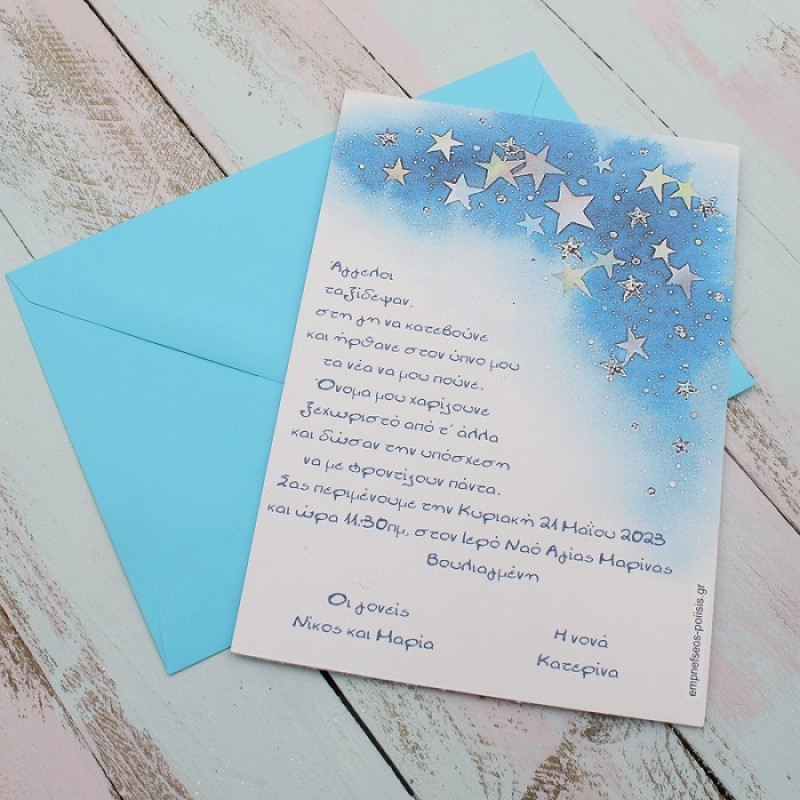 Άγγελοι
ταξίδεψαν,
στη γη να κατεβούνε
και ήρθανε στον ύπνο μου
τα νέα να μου πούνε.
Όνομα μου χαρίζουνε
ξεχωριστό από τ' άλλα
και δώσαν την υπόσχεση
να με φροντίζουν πάντα.
Σας περιμένουμε την Κυριακή 21 Μαΐου 2023
και ώρα 11:30πμ, στον Ιερό Ναό Αγίας Μαρίνας
Βουλιαγμένη
Οι γονείς
Νίκος και Μαρία
Η νονά
Κατερίνα
empnefseos-poiisis.gr